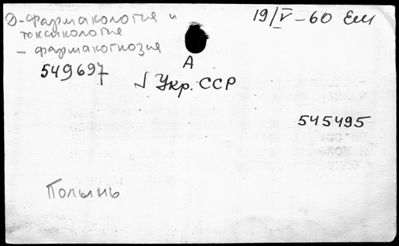 Д-Фармакология и
токсикология
– фармакогнозия
19/V–60 Ем
А
549697
√ Укр. ССР
545495
Полынь